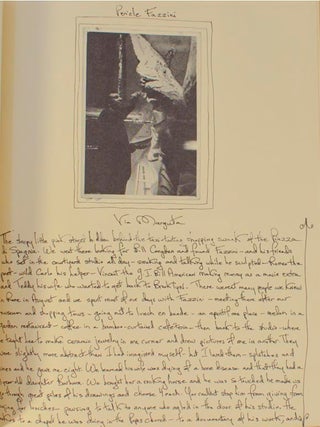 Pericle Fazzini
Via Margutta
The sleepy little pink street hidden behind the tea-totin snipping swank of the Piazza
di Spagna. We went there looking for Bill Congdon and found Fazzini - and his friends
who sat in the courtyard studio all day - smoking and talking while he sculpted - Romeo the
poet - wild Carlo his helper - Vincent the G.I. Bill American making money as a movie extra
and Teddy his wife who wanted to get back to Brooklyn. There weren't many people we knew
in Rome in August and we spent most of our days with Fazzini - meeting them after our
museum and shopping tours - going out to lunch en bande - an aperitif one place - melon in a
garden restaurant - coffee in a bamboo-curtained cafeteria - then back to the studio - where
he taught her to make ceramic jewelry in one corner and drew pictures of me in another. They
were slightly more abstract than I had imagined myself - but I loved them - splotches and
lines and he gave me eight. We learned his wife was dying of a bone disease and that they had a
year old daughter Barbara. We bought her a rocking horse and he was so touched he made us
go through great piles of his drawings and choose 4 each. You couldn't stop him from giving
pausing to talk to anyone who ambled in the door of his studio. He
us to a chapel he was doing in the Popes church - to a documentary of his work, and